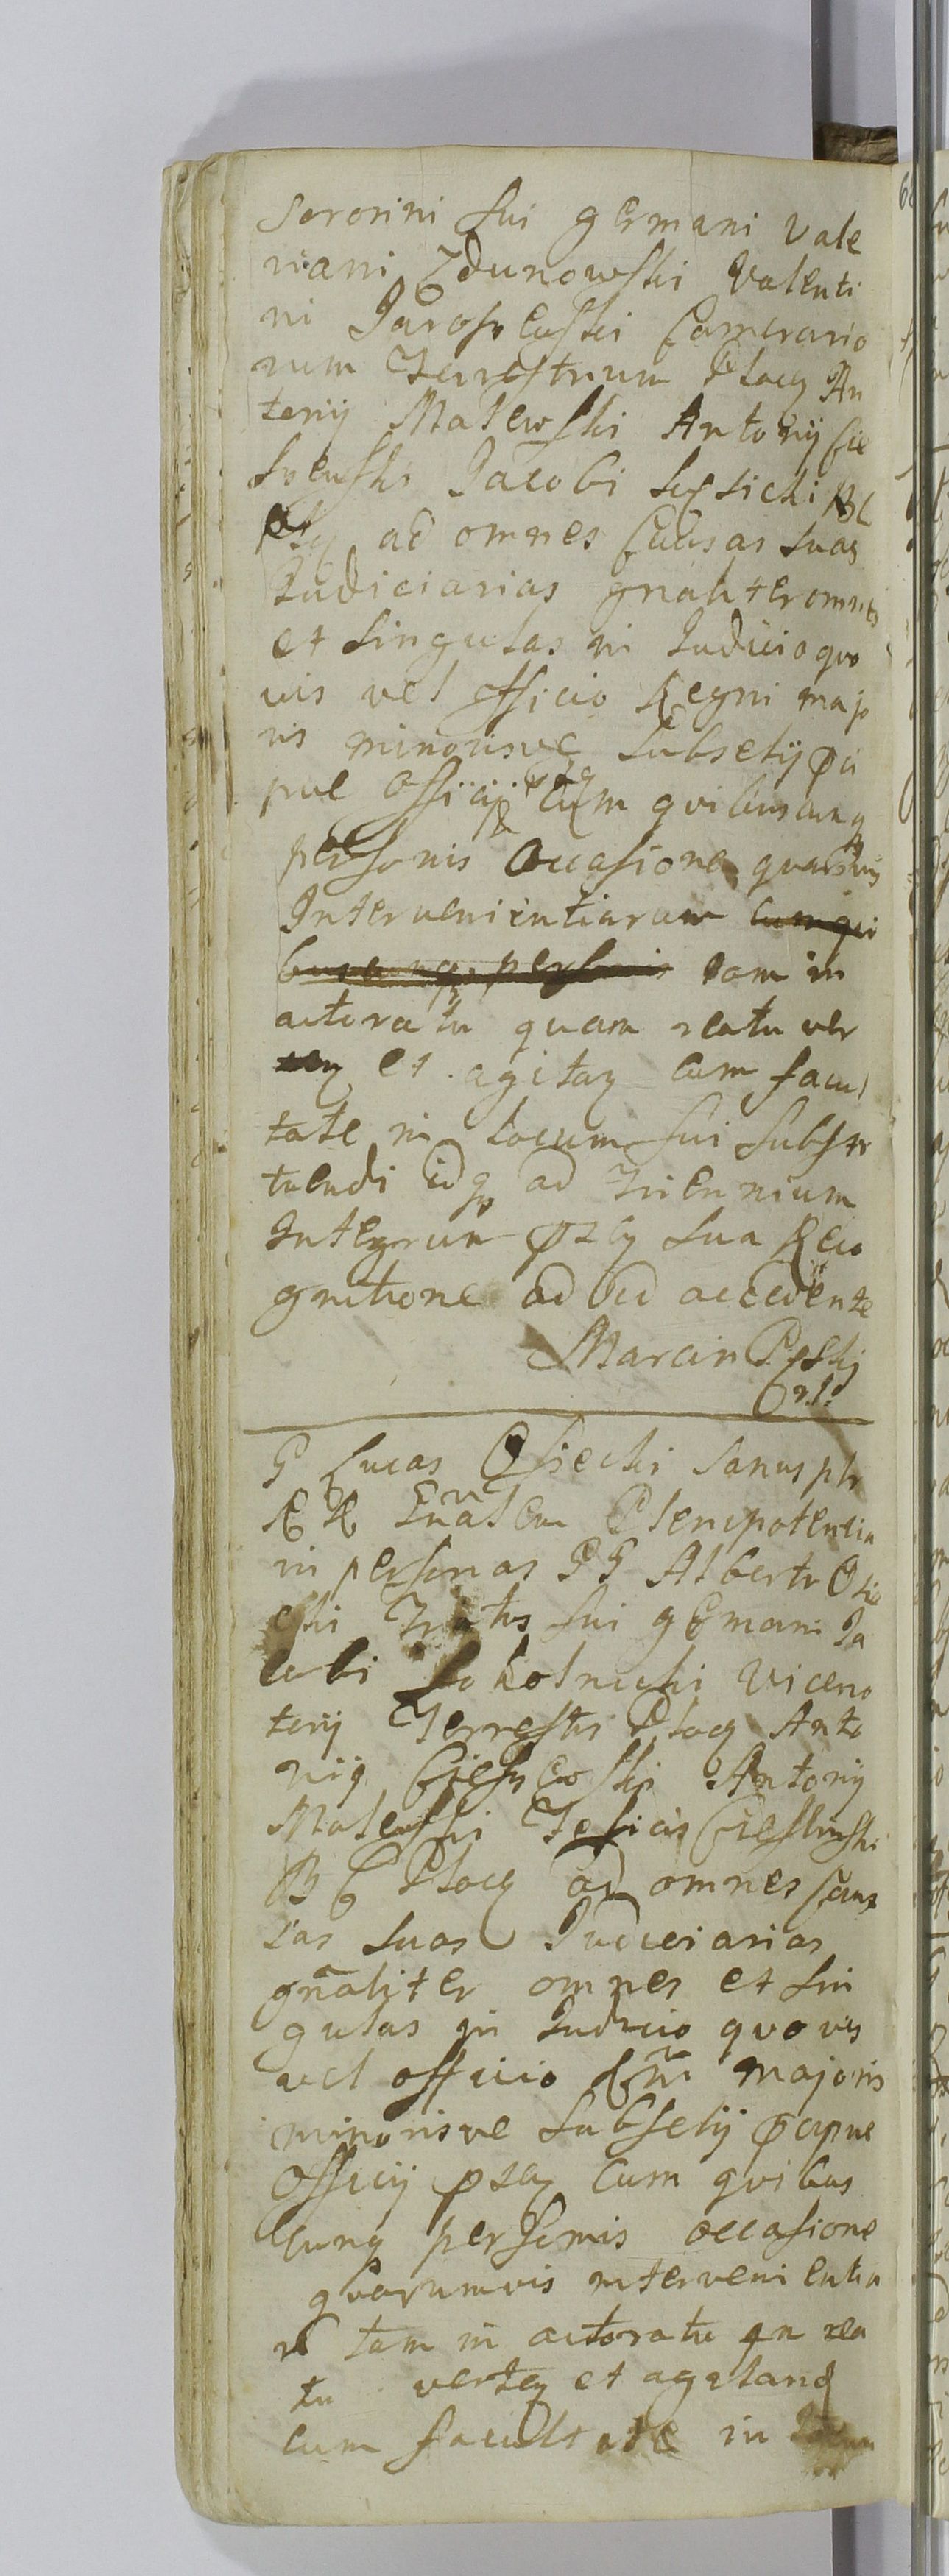 Sororini sui germani Vale
riani Zdunowski Valenti
ni Jaroszewski Camerario
rum Terrestrium Plocg An
tonij Malewski Antonij Cie
Jacobi BC
ad omnes Causas suas
Judiciarias gnaliter omnes
et singulas in Judicio quo
vis vel Officio Regni majo
ris minorisve Subselij
pue Officij cum quibuscunq
personis Occasione quarumvis
Intervenientiarum cum qui
buscunq personis tam in
actoratu quam reatu ver
et agitaq cum facul
tate in locum sui substi
tuendi idq ad Triennium
Integrum sua Reco
gnitione ad id accedente
Marcin

G Lucas Osiecki Sanus ptr
R R Gnalem Plenipotentia
in personas GG Alberti Osie
cki Fratris sui germani Ja
cobi Sokolnicki Viceno
tarij Terrestris Plocg Anto
nij Antonij
Malewski
B C Plocg ad omnes Caus
sas suas Judiciarias
gnaliter omnes et sin
gulas in Judicio quovis
vel officio Rni majoris
minorisve Subselij pcipue
Officij pstq Cum quibus
cunq personis occasione
quarumvis intervenientia
r tam in actoratu qn rea
tu vertq et agitand
cum facultate in locum